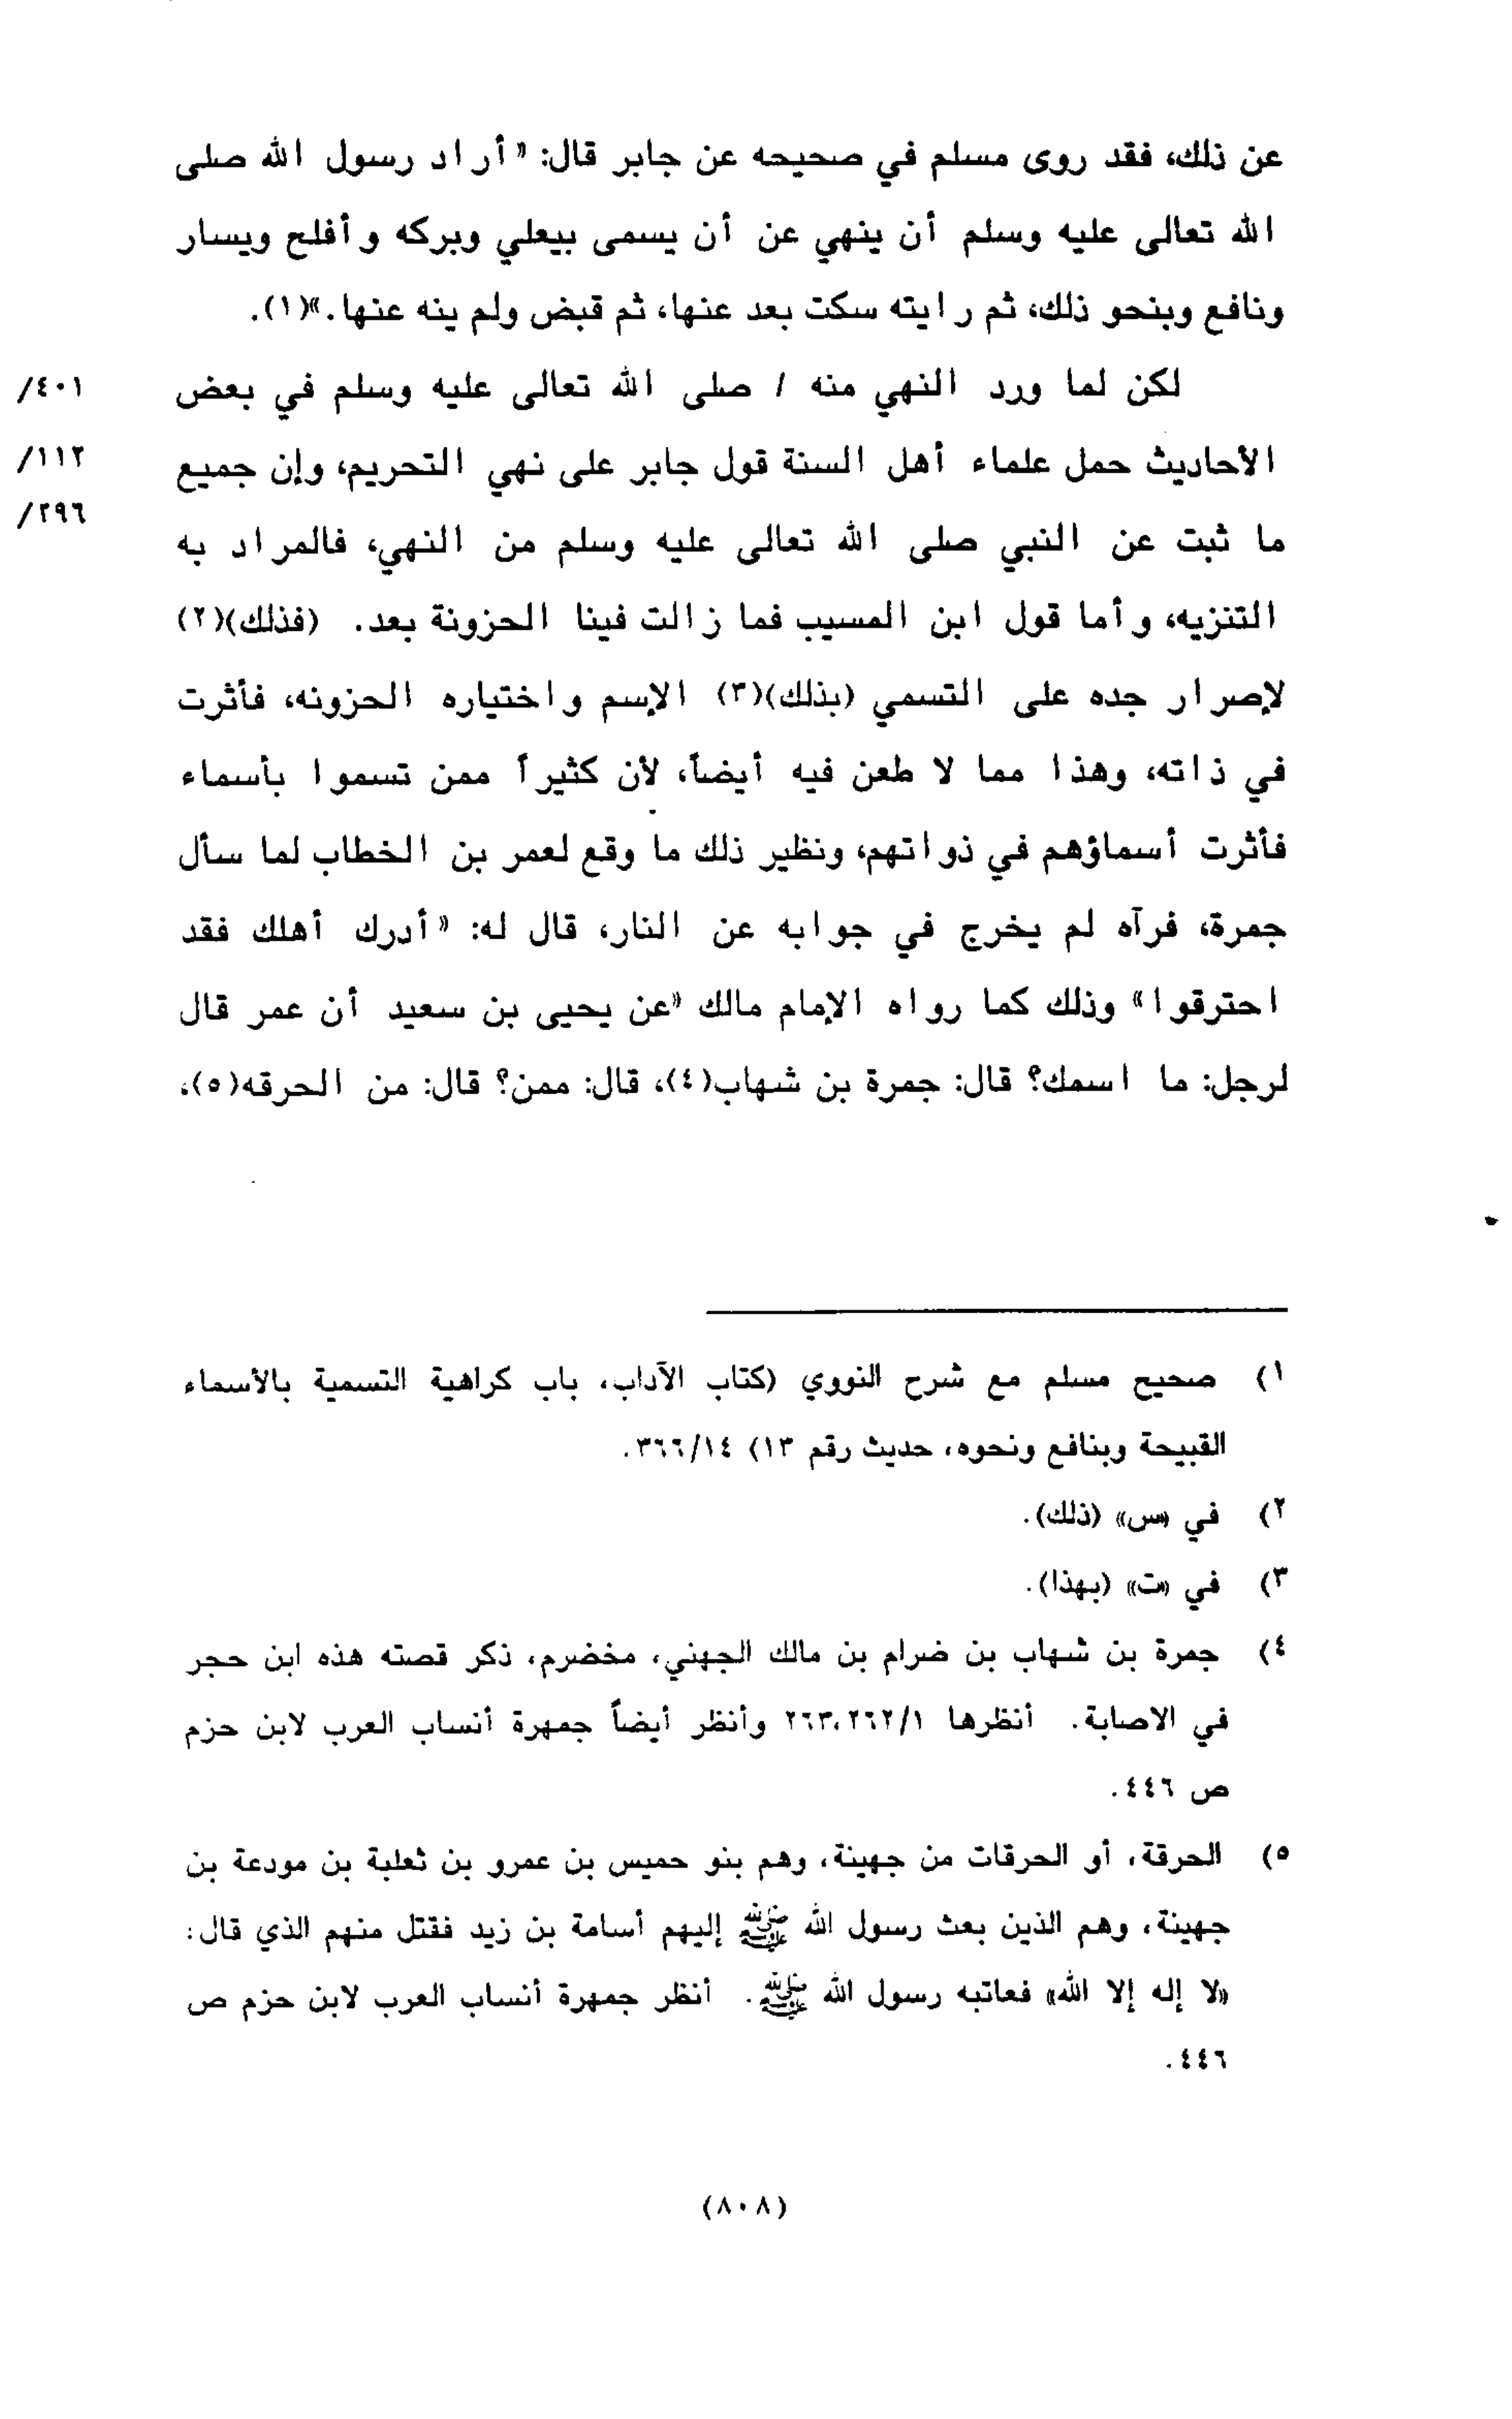 عن ذلك، فقد روى مسلم في صحيحه عن جابر قال: «أراد رسول الله صلى
الله تعالى عليه وسلم أن ينهي عن أن يسمى بيعلي وبركه وأفلح ويسار
ونافع وبنحو ذلك، ثم رايته سكت بعد عنها، ثم قبض ولم ينه عنها.»(١).
لكن لما ورد النهي منه / صلى الله تعالى عليه وسلم في بعض
٤٠١/
الأحاديث حمل علماء أهل السنة قول جابر على نهي التحريم، وإن جميع
١١٢/
٢٩٦/
ما ثبت عن النبي صلى الله تعالى عليه وسلم من النهي، فالمراد به
التنزيه، وأما قول ابن المسيب فما زالت فينا الحزونة بعد. (فذلك)(٢)
لإصرار جده على التسمي (بذلك)(٣) الإسم واختياره الحزونه، فأثرت
في ذاته، وهذا مما لا طعن فيه أيضاً، لأن كثيراً ممن تسموا بأسماء
فأثرت أسماؤهم في ذواتهم، ونظير ذلك ما وقع لعمر بن الخطاب لما سأل
جمرة، فرآه لم يخرج في جوابه عن النار، قال له: «أدرك أهلك فقد
احترقوا» وذلك كما رواه الإمام مالك «عن يحيى بن سعيد أن عمر قال
لرجل: ما اسمك؟ قال: جمرة بن شهاب(٤)، قال: ممن؟ قال: من الحرقه(٥)،
١) صحيح مسلم مع شرح النووي (كتاب الآداب، باب كراهية التسمية بالأسماء
القبيحة وبنافع ونحوه، حديث رقم ١٣) ٣٦٦/١٤.
٢) في «س» (ذلك).
٣) في «ت» (بهذا).
٤) جمرة بن شهاب بن ضرام بن مالك الجهني، مخضرم، ذكر قصته هذه ابن حجر
في الاصابة. أنظرها ٢٦٣،٢٦٢/١ وأنظر أيضاً جمهرة أنساب العرب لابن حزم
ص ٤٤٦.
٥) الحرقة، أو الحرقات من جهينة، وهم بنو حميس بن عمرو بن ثعلبة بن مودعة بن
جهينة، وهم الذين بعث رسول الله ﷺ إليهم أسامة بن زيد فقتل منهم الذي قال:
«لا إله إلا الله» فعاتبه رسول الله ﷺ. أنظر جمهرة أنساب العرب لابن حزم ص
٤٤٦.
(٨٠٨)